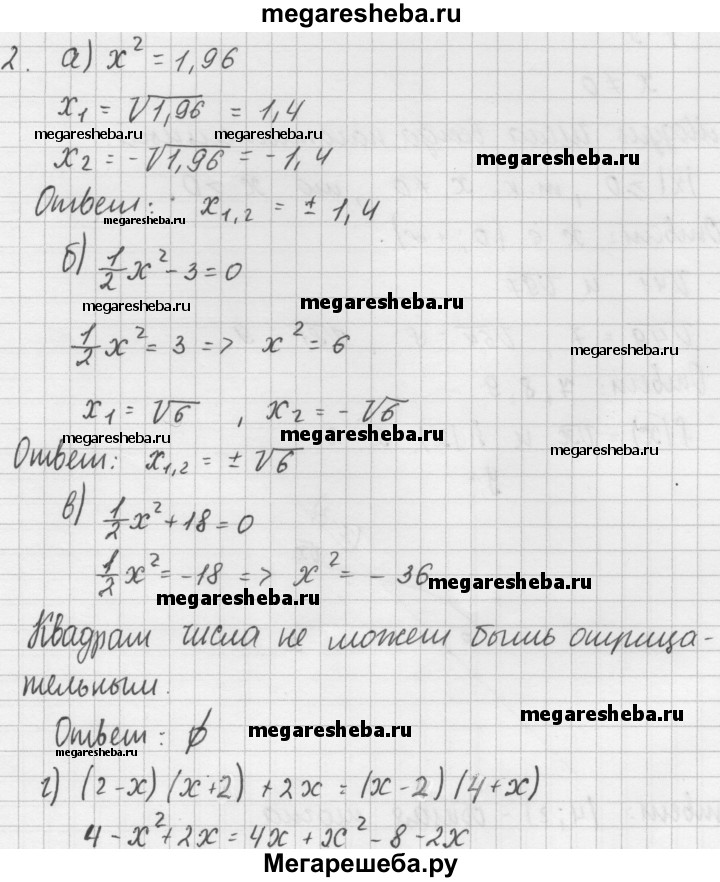 megaresheba.ru
2. а) x² = 1,96
x₁ = √1,96 = 1,4
megaresheba.ru megaresheba.ru
x₂ = -√1,96 = -1,4 megaresheba.ru
Ответ: x₁,₂ = ± 1,4
megaresheba.ru
б) 1/2 x² - 3 = 0
megaresheba.ru megaresheba.ru
1/2 x² = 3 => x² = 6 megaresheba.ru
x₁ = √6 , x₂ = -√6
megaresheba.ru megaresheba.ru
Ответ: x₁,₂ = ± √6 megaresheba.ru
в) 1/2 x² + 18 = 0
1/2 x² = -18 => x² = - 36 megaresheba.ru
megaresheba.ru
Квадрат числа не может быть отрица-
тельным.
megaresheba.ru
Ответ: ∅ megaresheba.ru
megaresheba.ru
г) (2-x) (x+2) + 2x = (x-2) (4+x)
4 - x² + 2x = 4x + x² - 8 - 2x
Мегарешеба.ру